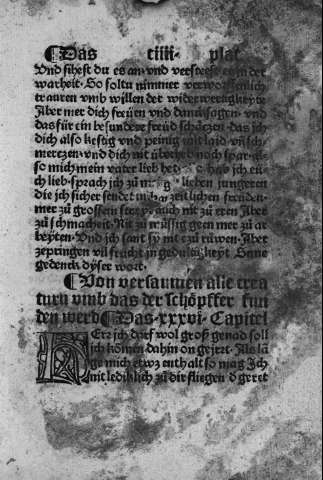 ¶ Das ciiii. plat
Vnd sihest du es an. vnd versteest es in der
warheit. So soltu nimmer verworffenlich
trauren vmb willen der widerwertigkeyte
Aber mer dich freüen vnd dancksagen. vnd
das für ein besundere freüd schätzen. das ich
dich also kestig vnd peinig mit laid vn̄ sch
mertzen. vnd dich nit überheb noch spar. al
so mich mein vater lieb het. so hab ich eu
ch lieb. sprach ich zů lieben jungeren
die ich sicher sendet nit zů zeitlichen freüden.
mer zů grossem streyt. auch nit zů eren Aber
zů schmacheit. Nit zů müssig geen mer zů ar
beyten. Vnd ich sant sy nit zů růwen. Aber
zepringen vil frucht in gedultikeyt. Sune
gedenck dyser wort.
¶ Von versaumen alle crea
turn vmb das der schöpffer fun
den werd ¶ Das. xxxvi. Capitel
HErz ich darf wol groß genad soll
ich kömen dahin on geirret. Als lā
ge mich etwz enthalt so mag Ich
nit lediklich zů dir fliegen d geret